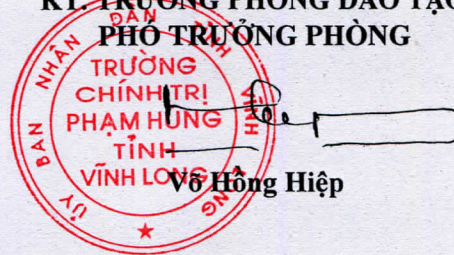 KT. TRƯỞNG PHÒNG ĐÀO TẠO
PHÓ TRƯỞNG PHÒNG
ỦY BAN NHÂN DÂN TỈNH VĨNH LONG
TRƯỜNG
CHÍNH TRỊ
PHẠM HÙNG
TỈNH
VĨNH LONG
Võ Hồng Hiệp